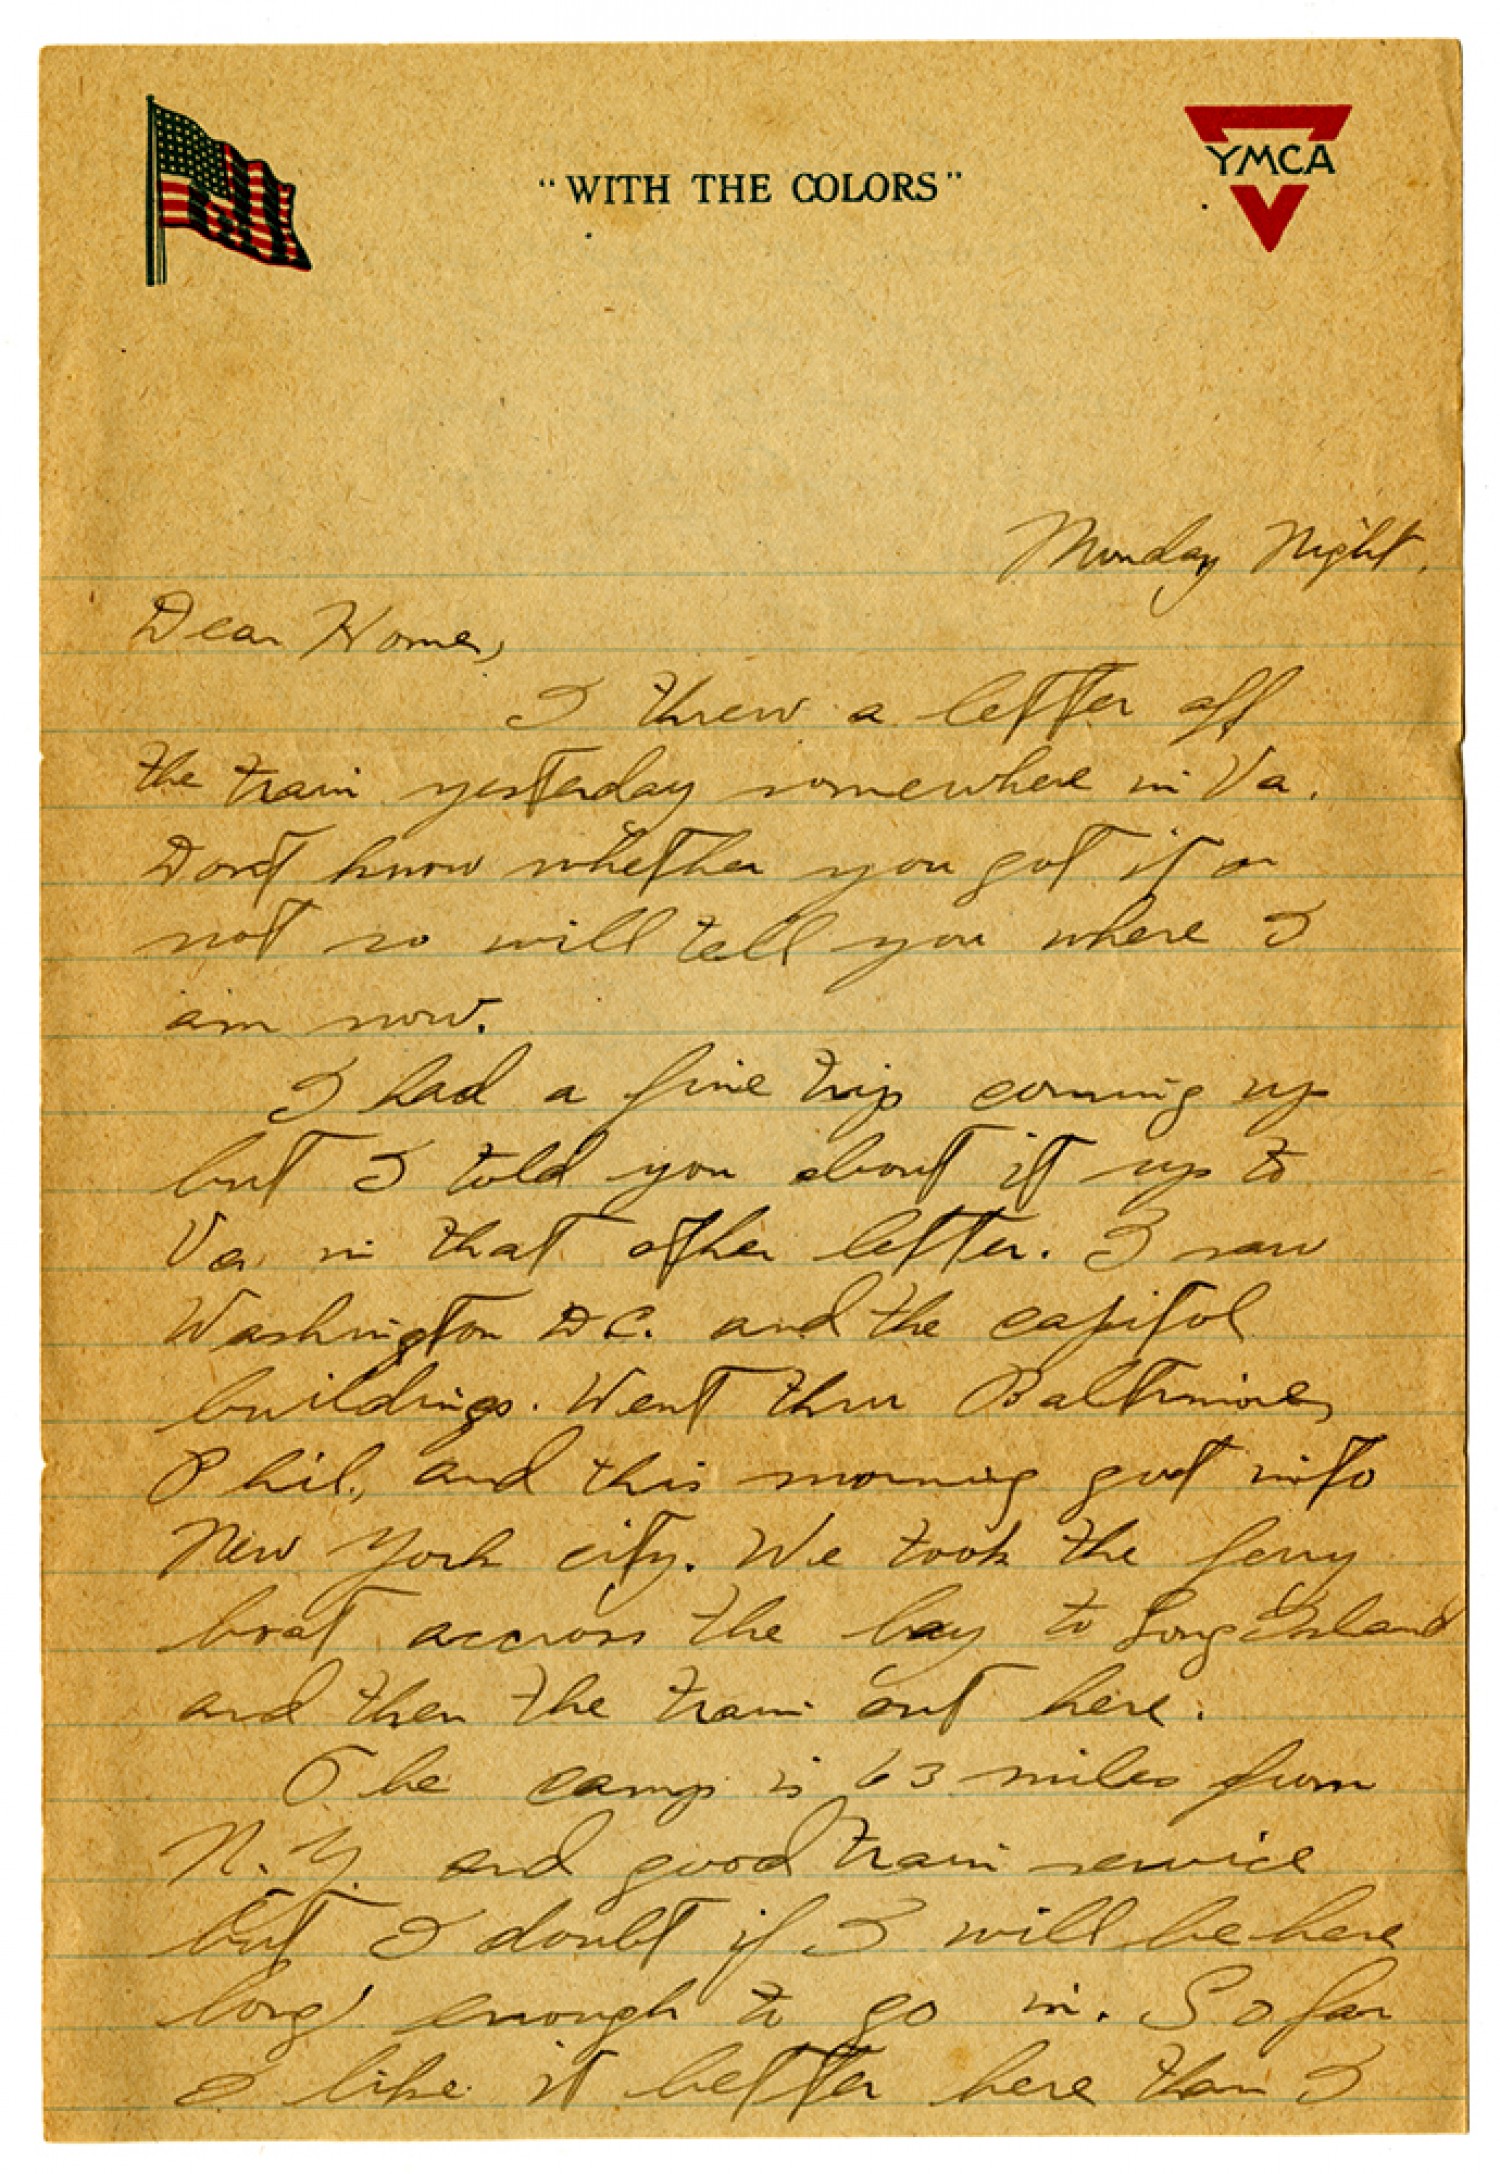 "WITH THE COLORS"
YMCA
Monday Night.
Dear Homer,
I threw a letter off
the train yesterday somewhere in Va.
Don't know whether you got it or
not so will tell you where I
am now.
I had a fine trip coming up
but I told you about it up to
Va. in that other letter. I saw
Washington D.C. and the capitol
buildings. Went thru Baltimore,
Phil., and this morning got into
New York city. We took the ferry
boat accross the bay to Long Island
and then the train out here.
The camp is 63 miles from
N.Y. and good train service
but I doubt if I will be here
long enough to go in. So far
I like it better here than I